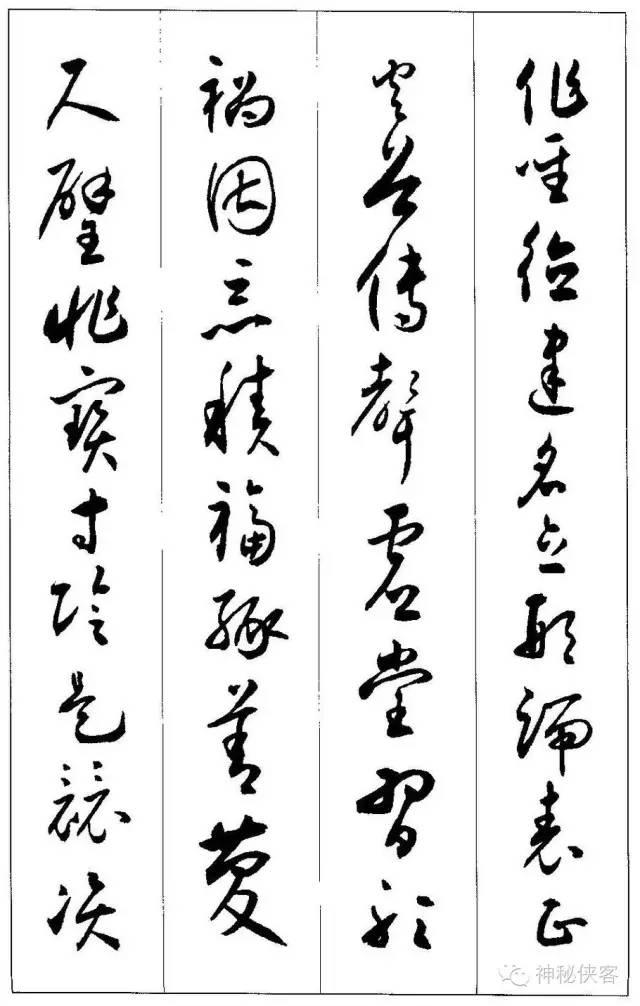 作聖德建名立形端表正
空谷傳聲虛堂習聽
禍因惡積福緣善慶
尺璧非寶寸陰是競資
神秘侠客